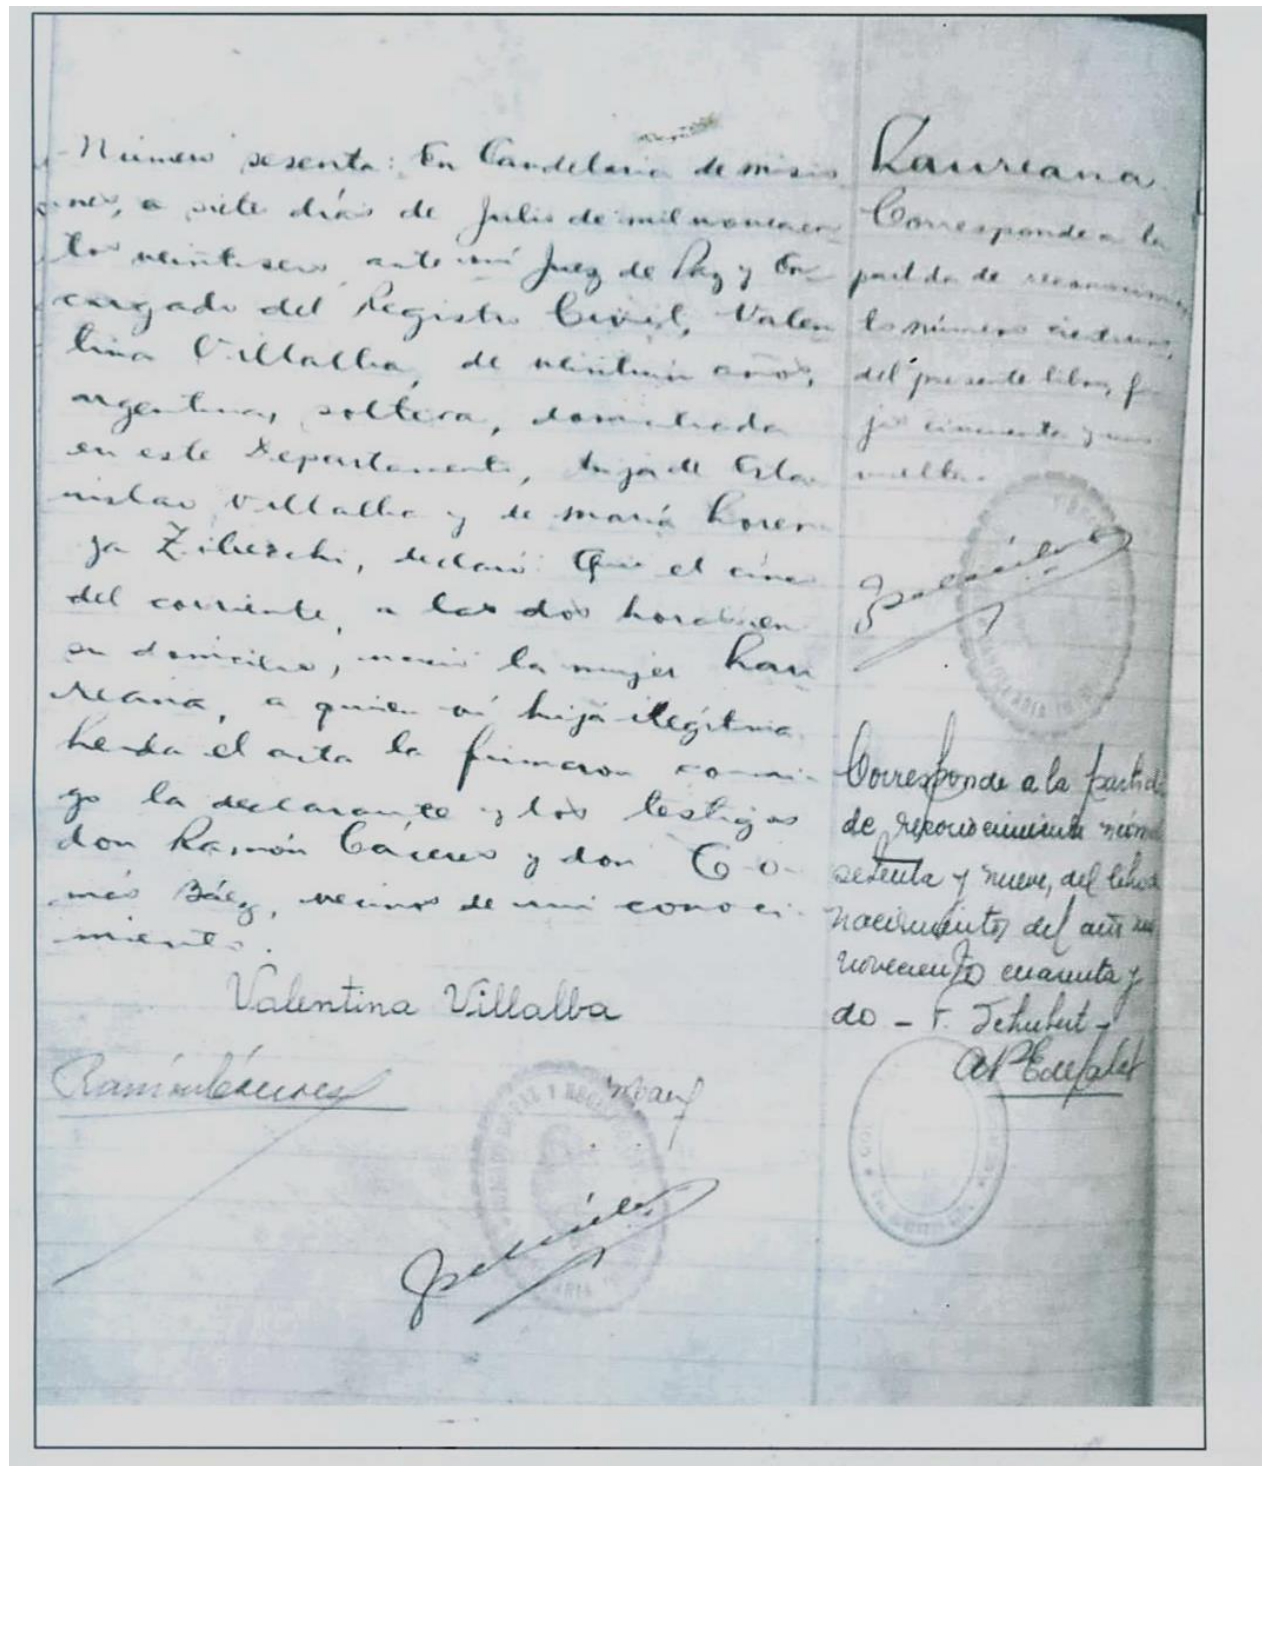 Número sesenta: En Candelaria de Misio
nes, a siete días de Julio de mil novecien
tos veintiseis ante mí Juez de Paz y En
cargado del Registro Civil, Valen
tina Villalba, de veintiun años,
argentina, soltera, domiciliada
en este Departamento, hija de Esta
nislao Villalba y de María Loren
za Zibezchi, declaró: Que el cinco
del corriente, a las dos horas en
su domicilio, nació la mujer Lau
reana, a quien vi hija ilegítima.
Leida el acta la firmaron conmi
go la declarante y los testigos
don Ramón Cáceres y don
Báez, vecinos de mi conoci
miento.
Valentina Villalba
Ramón Cáceres
Laureana
Corresponde a la
partida de reconocimien
to número
del presente libro, fo
jio cincuenta y uno
vuelta.
Corresponde a la partida
de reconocimiento núm
setenta y nueve, del libro de
nacimientos del año mil
novecientos cuarenta y
do – F. Schubert –